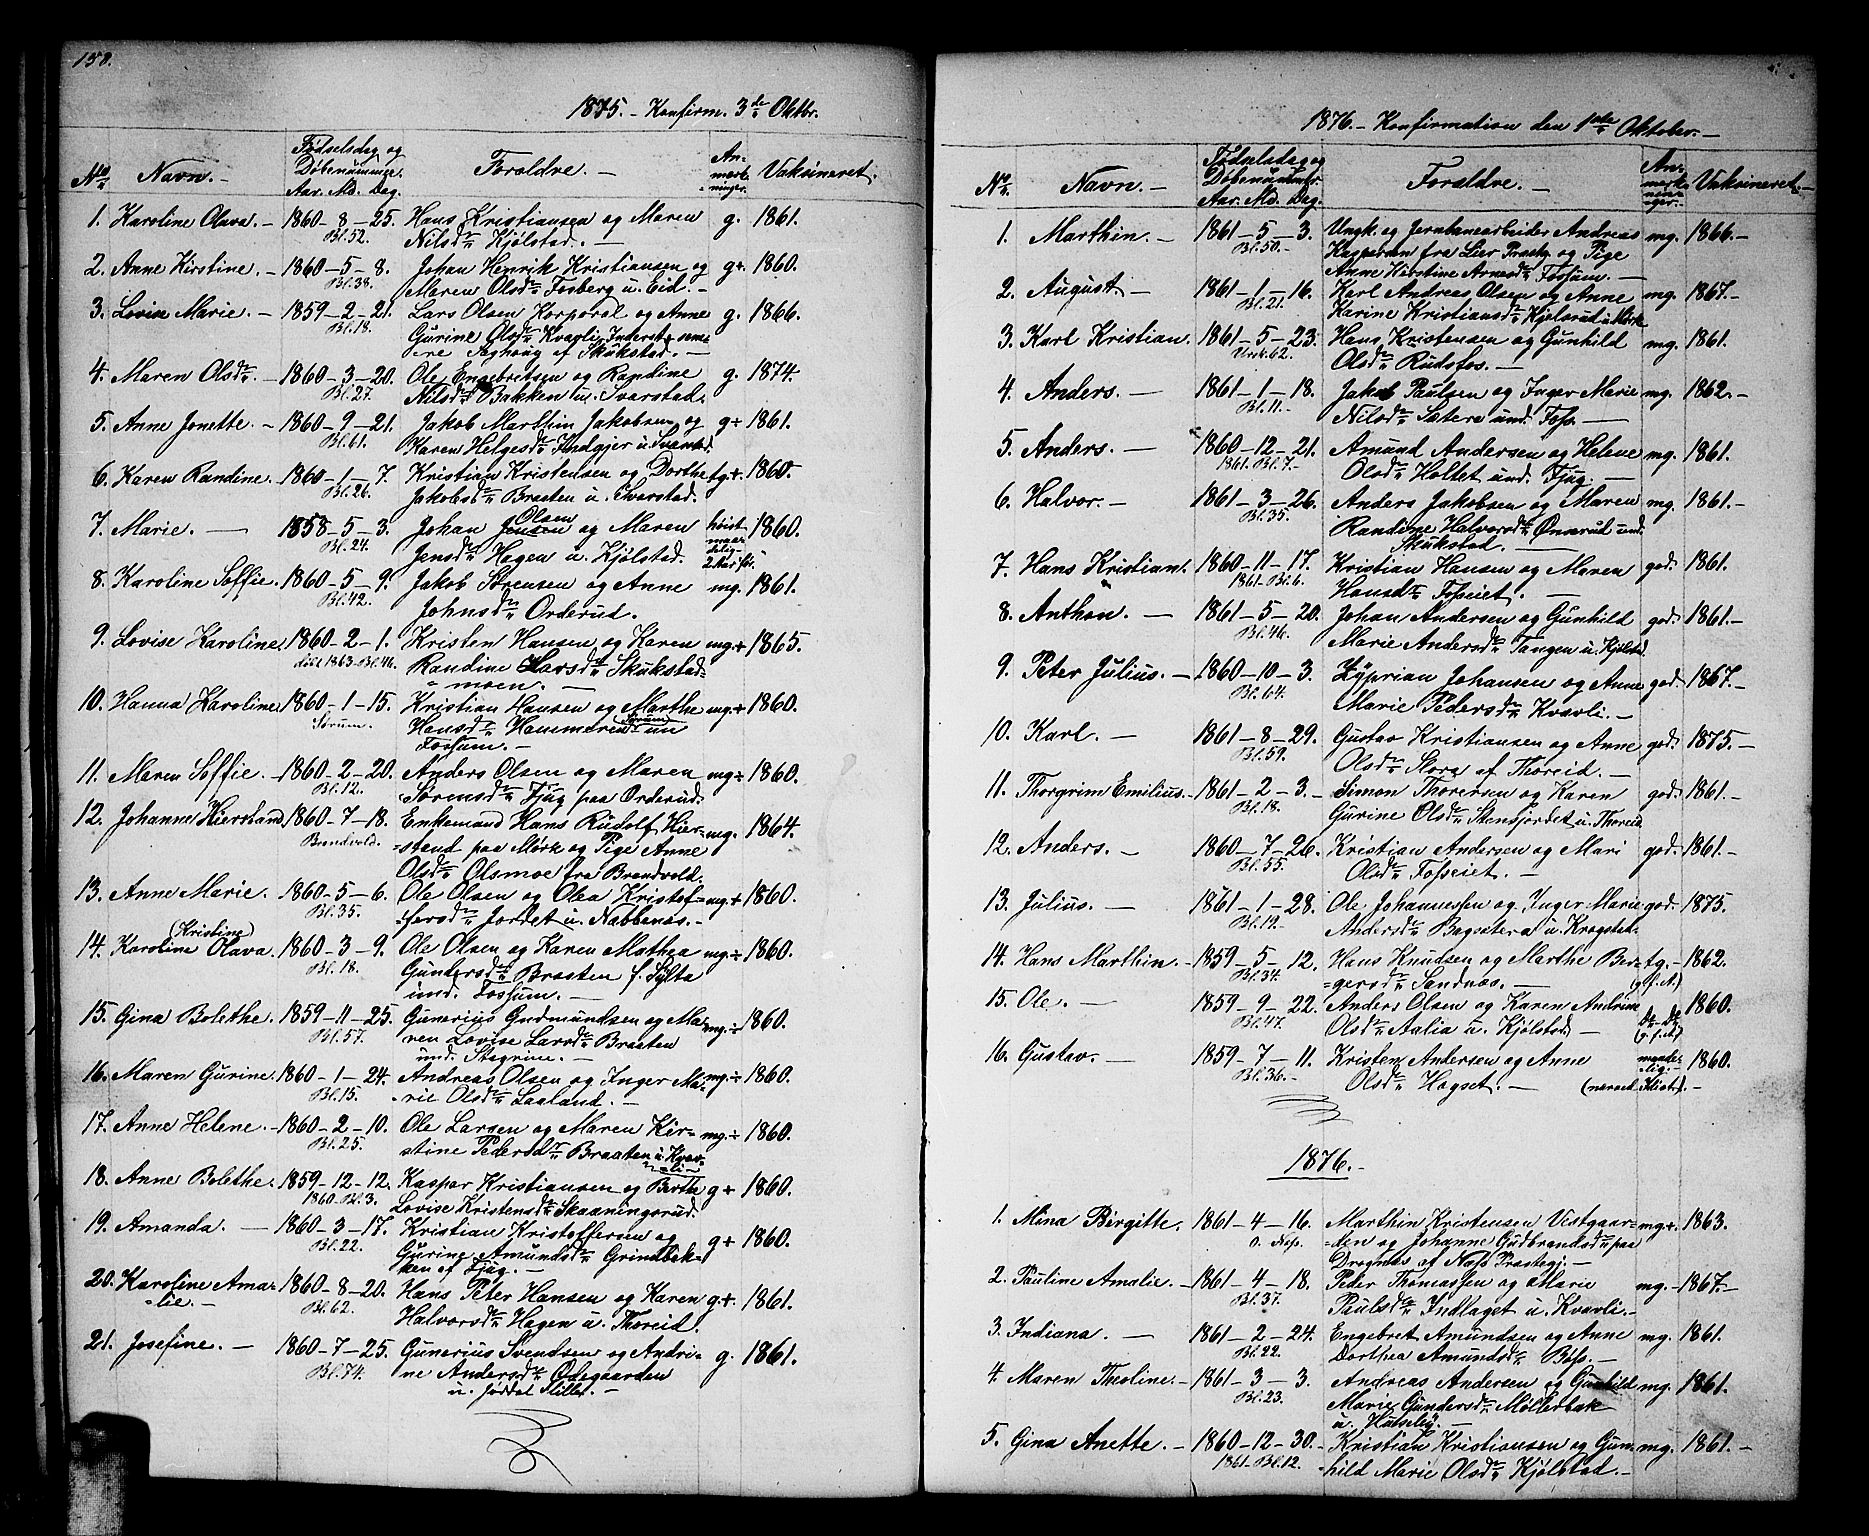 158.
1875. - Konfirm. 3de Oktbr.
No Navn. - Fødselsdag og Døbenummer. Aar. Md. Dag. Foraldre. - Anmerkninger. Vaksineret.
1. Karoline Olava. - 1860-8-25. Hans Kristiansen og Maren g. 1861.
Bl. 52. Nilsdr Kjølstad. -
2. Anne Kirstine. - 1860-5-8. Johan Henrik Kristiansen og g+ 1860.
Bl. 38. Maren Olsdr Fosberg u. Eid. -
3. Lovise Marie. - 1859-2-21. Lars Olsen Korporal og Anne g. 1866.
Bl. 18. Gurine Olsdr Kvavli, Inderst,
af Skukstad. -
4. Maren Olsdr. - 1860-3-20. Ole Engebretsen og Randine g. 1874.
Bl. 27. Nilsdr Bakken u. Svarstad.
5. Anne Jonette. - 1860-9-21. Jakob Marthin Jakobsen og g+ 1861.
Bl. 61. Karen Helgesdr
6. Karen Randine. 1860-1-7. Kristian Kristensen og Dorthe tg+ 1860.
Bl. 26. Jakobsdr Braaten u. Svarstad.
7. Marie. - 1858-5-3. Johan Jensen Olsen og Maren høist maadelig 1860.
Bl. 24. Jensdr Hagen u. Kjølstad.
8. Karoline Soffie. 1860-5-9. Jakob Sørensen og Anne mg. 1861.
Bl. 42. Johnsdr Orderud.
9. Lovise Karoline. 1860-2-1. Kristen Hansen og Karen mg+ 1865.
1863-Bl. 46. Randine Larsdr Skukstad=
=moen. -
10. Hanna Karoline. 1860-1-15. Kristian Hansen og Marthe mg+ 1860.
Sørum. Hansdr Hammeren (Sørum) un
Fossum. -
11. Maren Soffie. - 1860-2-20. Anders Olsen og Maren mg÷ 1860.
Bl. 12. Sørensdr Fjug paa Orderud.
12. Johanne Hierstand. 1860-7-18. Enkemand Hans Rudolf Hier= mg. 1864.
Brandvold. =stand paa Mørk og Pige Anne
Olsdr Olsmoe fra Brandvold.
13. Anne Marie. 1860-5-6. Ole Olsen og Olea Kristof= mg+ 1860.
Bl. 35. =fersdr Jordet u. Nabbenæs. -
14. Karoline (Kristine) Olava. 1860-3-9. Ole Olsen og Karen Mathea mg÷ 1860.
Bl. 18. Guntersdr Braaten f. Sylta
und. Fossum. -
15. Gina Bolethe. 1859-11-25. Gunerius Gudmundsen og Ma= mg÷ 1860.
Bl. 57. ren Lovise Larsdr Braaten
und. Stegrim. -
16. Maren Gurine. 1860-1-24. Andreas Olsen og Inger Ma= mg÷ 1860.
Bl. 15. rie Olsdr Laaland. -
17. Anne Helene. - 1860-2-10. Ole Larsen og Maren Kir= mg÷ 1860.
Bl. 25. stine Pedersdr Braaten u. Kvav=
=li-
18. Anne Bolethe. 1859-12-12. Kaspar Kristiansen og Berthe g+ 1860.
1860-Bl. 3. Lovise Kristensdr Skaaningsrud.
19. Amanda. - 1860-3-17. Kristian Kristoffersen og g+ 1860.
Bl. 22. Gurine Amundsdr Grindbak=
ken af Fjug. -
20. Karoline Ama= 1860-8-20. Hans Peter Hansen og Karen g+. 1861.
=lie. - Bl. 62. Halvorsdr Hagen u. Thoreid.
21. Josefine. - 1860-7-25. Gunerius Svendsen og Andri= g. 1861.
Bl. 74. ne Andersdr Ødegaarden
u. Jordet Stillet. -
1876. - Konfirmation den 1ste Oktober. -
No. Navn. - Fødselsdag og Døbenummer. Aar. Md. Dag. Foraldre. - Anmerkninger. Vaksineret. -
1. Marthin. - 1861-5-3. Ungk. og Jernbanearbeider Andreas mg. 1866. -
Bl. 50. Kaspersen fra Lier Præstg. og Pige
Anne Kirstine Arnesdr Fossum. -
2. August. - 1861-1-16. Karl Andreas Olsen og Anne mg. 1867. -
Bl. 21. Karine Kristiansdr Kjelsrud u. Mørk
3. Karl Kristian. 1861-5-23. Hans Kristensen og Gunhild mg. 1861.
62. Olsdr Rudsfos. -
4. Anders. - 1861-1-18. Jakob Paulsen og Inger Marie mg. 1862. -
Bl. 11. - Nilsdr Sætere und. Foss. -
5. Anders. - 1860-12-21. Amund Andersen og Helene mg. 1861.
1861. Bl. 7. - Olsdr Holtet und. Fjug. -
6. Halvor. - 1861-3-26. Anders Jakobsen og Maren mg. 1861. -
Bl. 35. Randine Halvorsdr Ønnerud und.
Skukstad. -
7. Hans Kristian. 1860-11-17. Kristian Hansen og Maren god. 1861.
1861-Bl. 6. Hansdr Fosseiet. -
8. Anthon. - 1861-5-20. Johan Andersen og Gunhild god. 1861. -
Bl. 46. Marie Andersdr Tangen u. Kjølstad.
9. Peter Julius. - 1860-10-3. Zyprian Johansen og Anne god. 1867. -
Bl. 64. Marie Pedersdr Kvavli. -
10. Karl. - 1861-8-29. Gustav Kristiansen og Anne god. 1875. -
Bl. 59. Olsdr Stora af Thoreid. -
11. Thorgrim Emilius. - 1861-2-3. - Simon Thorersen og Karen god. 1861. -
Bl. 18. Gurine Olsdr Stenfjordet u. Thoreid
12. Anders. - 1860-7-26. Kristian Andersen og Mari god. 1861. -
Bl. 55. Olsdr Fosseiet. -
13. Julius. - 1861-1-28. Ole Johannessen og Inger Marie god. 1875.
Bl. 19. Andersdr Bagsætera u. Kragstad.
14. Hans Marthin. - 1859-5-12. Hans Knudsen og Marthe Ber= tg. - 1862.
Bl. 34. =gersdr Sandnæs. - (g. f. A.)
15. Ole. - 1859-9-22. Anders Olsen og Karen Andrine Do Do 1860.
Bl. 47. Olsdr Aalia u. Kjølstad -
16. Gustav. - 1859-7-11. Kristen Andersen og Anne maade=lig. - 1860.
Bl. 36. - Olsdr Hogset. -
1876. -
1. Mina Birgitte. 1861-4-16. Marthin Kristensen Vestgaar= mg+. 1863.
=den og Johanne Gudbrandsdr paa
Dragnæs af Næs Præstegj. -
2. Pauline Amalie. - 1861-4-18. Peder Thomassen og Marie mg. 1867. -
Bl. 37. Paulsdr Indlaget u. Kvavli. -
3. Indiana. - 1861-2-24. Engebret Amundsen og Anne mg. 1861.
Bl. 22. Dorthea Amundsdr Bøss. -
4. Maren Theoline. - 1861-3-3. Andreas Andersen og Gunhild mg. 1861.
Bl. 23. Marie Gundersdr Møllerbak
u.
5. Gina Anette. - 1860-12-30. - Kristian Kristiansen og Gun= mg. 1861. -
1861-Bl. 12. =hild Marie Olsdr Kjølstad. -